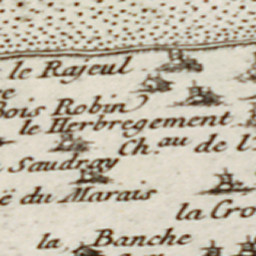 le Rajeul
Bois Robin
le Herbregement
Ch.au de l'
Saudray
ë du Marais
la Cro
la Banche